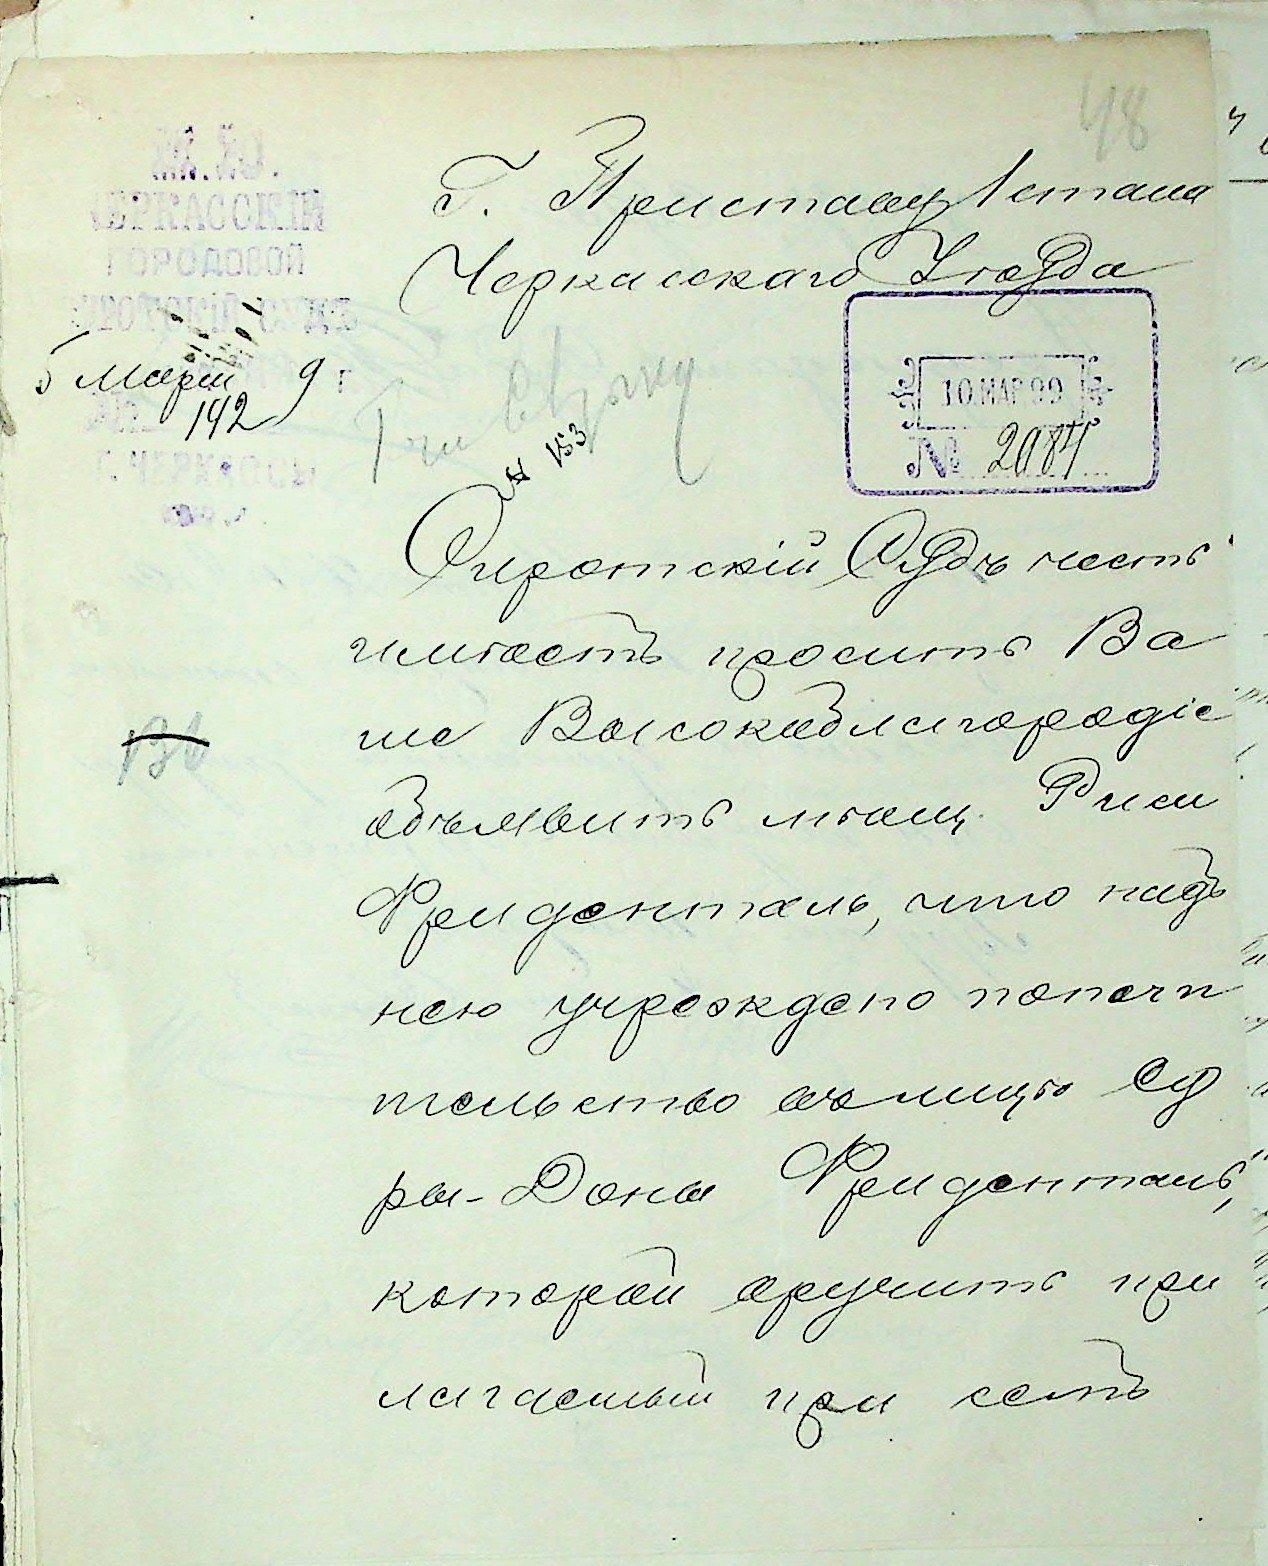 48
М.Ю.
ЧЕРКАССКІЙ
ГОРОДОВОЙ
СИРОТСКІЙ СУДЪ
5 Марта 9 г
№ 142
Г. ЧЕРКАССЫ
Г. Приставу 1 стана
Черкасскаго Уѣзда
10 МАР 99
№ 2084
№ 153
Сиротскій Судъ честь
имѣетъ просить Ва
ше Высокоблагородіе
объявить мѣщ.
Фриденталь, что надъ
нею учреждено попечи
тельство въ лицѣ Са
ры-Доны Фриденталь,
которой вручить при
лагаемый при семъ
136